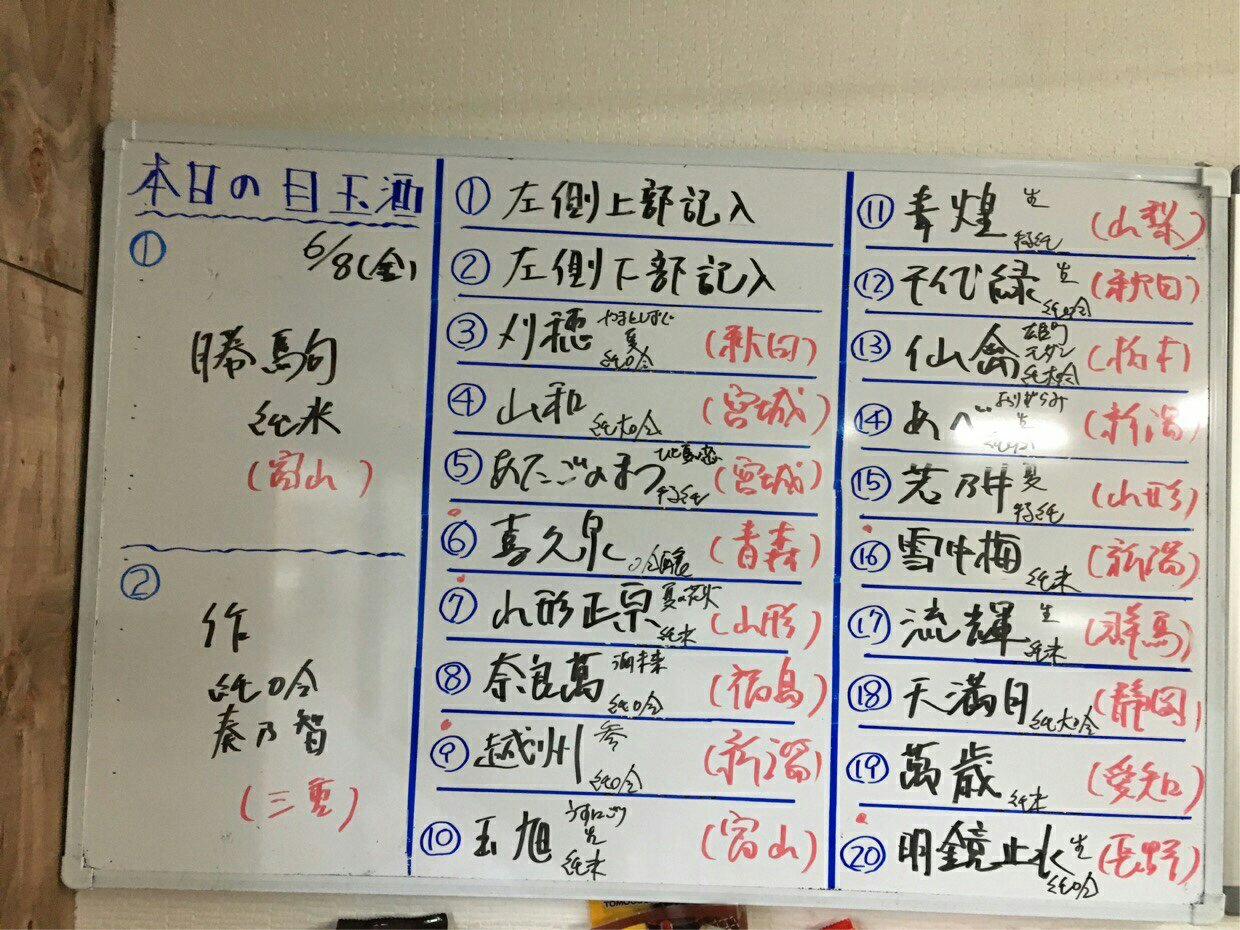 本日の目玉酒
① 6/8(金)
勝馬句
純米
(富山)
②
作
純吟
奏乃智
(三重)
① 左側上部記入
② 左側下部記入
③ 刈穂 夏 純吟 (秋田)
④ 山和 純大吟 (宮城)
⑤ あたごのまつ 特純 (宮城)
⑥ 喜久泉 吟醸 (青森)
⑦ 山形正宗 夏の花火 純米 (山形)
⑧ 奈良萬 純吟 (福島)
⑨ 越州 参 純吟 (新潟)
⑩ 玉旭 うすにごり 生 純米 (富山)
⑪ 青煌 生 特純 (山梨)
⑫ 千代緑 生 純吟 (秋田)
⑬ 仙禽 雄町 モダン 純大吟 (栃木)
⑭ あべ 生 (新潟)
⑮ 若乃井 夏 特純 (山形)
⑯ 雪中梅 純米 (新潟)
⑰ 流輝 生 純米 (群馬)
⑱ 天満月 純大吟 (静岡)
⑲ 萬歳 純米 (愛知)
⑳ 明鏡止水 生 純吟 (長野)